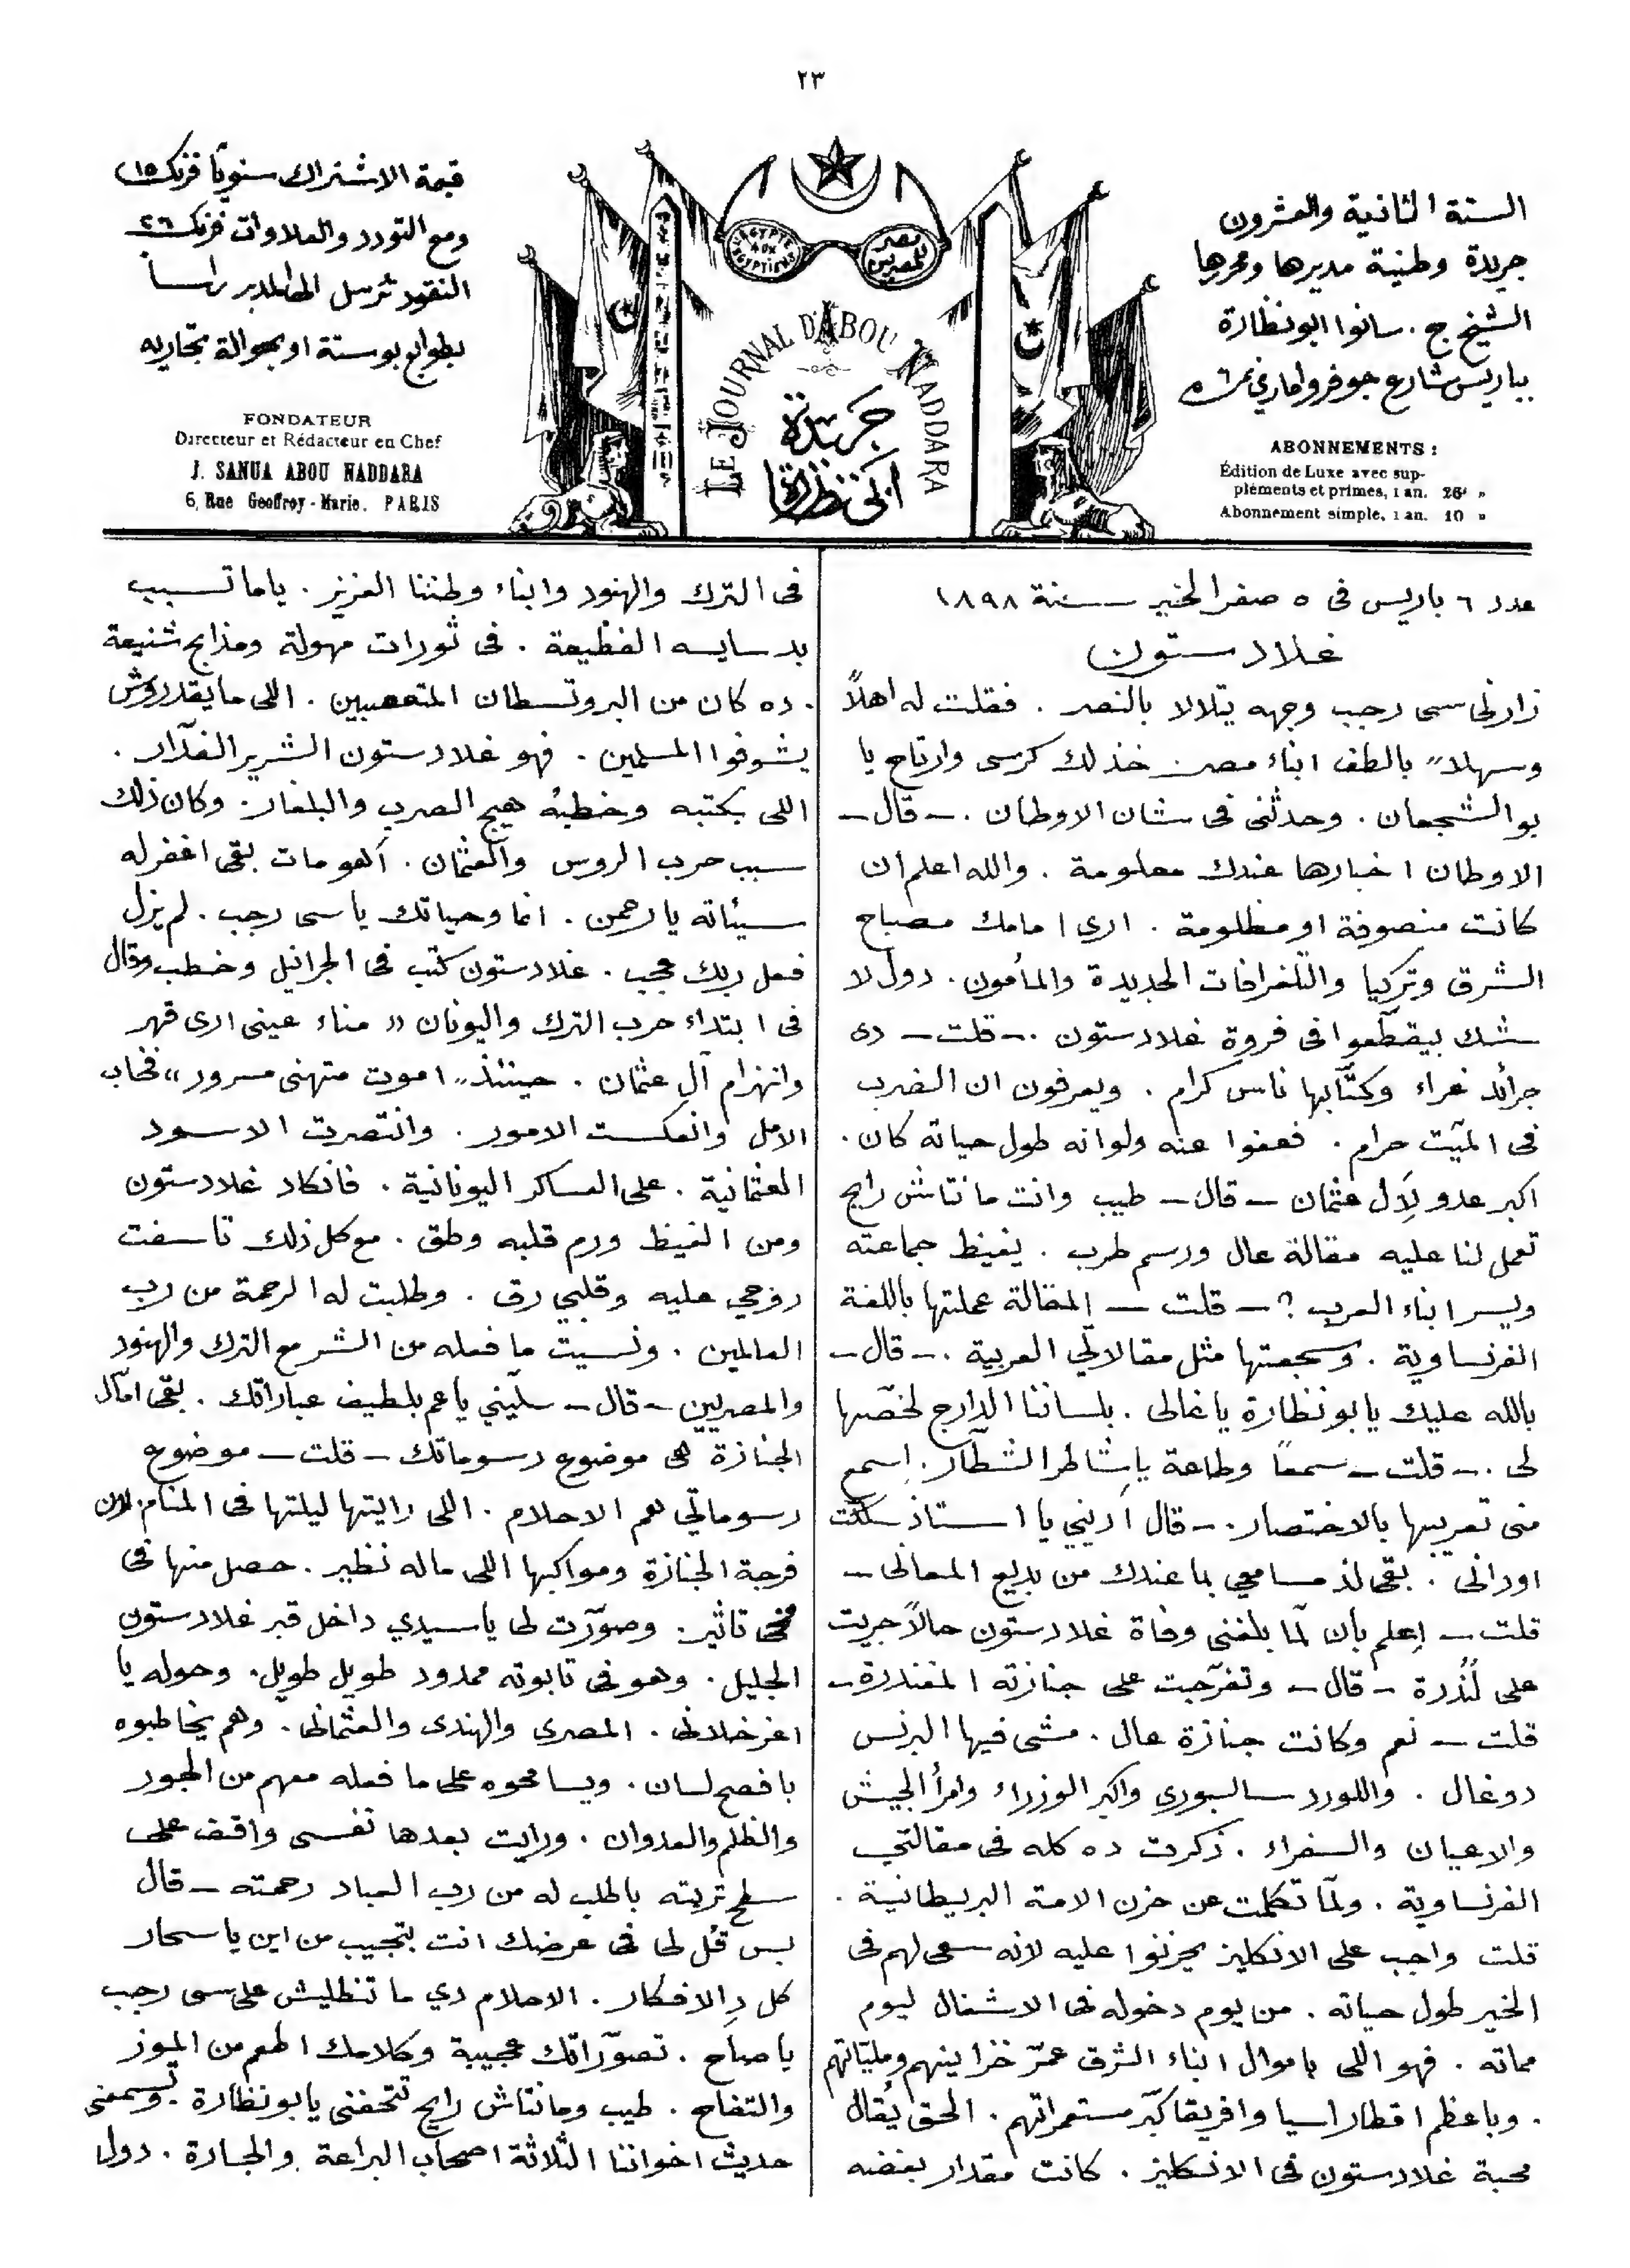 ٢٣
السنة الثانية والعشرون
جريدة وطنية مديرها ومحررها
الشيخ ج. سانوا ابو نظارة
بباريس شارع جوفروا ماري نمرة ٦
ABONNEMENTS :
Édition de Luxe avec sup-
pléments et primes, 1 an. 26f »
Abonnement simple, 1 an. 10 »
مصر للمصريين
L'ÉGYPTE AUX EGYPTIENS
LE JOURNAL D'ABOU NADDARA
جريدة
ابي نظارة
قيمة الاشتراك سنويًا فرنك ١٥
ومع التورد والعلاوات فرنك ٢٦
النقود ترسل الى المدير راساً
بطوابع بوستة او بحوالة تجاريه
FONDATEUR
Directeur et Rédacteur en Chef
J. SANUA ABOU NADDARA
6, Rue Geoffroy-Marie. PARIS
عدد ٦ باريس فى ٥ صفر الخير سنة ١٨٩٨
غلادستون
زارنى سى رجب وجهه يتلالا بالنصر . فقلت له اهلاً
وسهلا" بالطف ابناء مصر . خذ لك كرسى وارتاح يا
بو الشجعان . وحدثنى فى شان الاوطان . - قال -
الاوطان اخبارها عندك معلومة . والله اعلم ان
كانت منصوفة او مظلومة . ارى امامك مصباح
الشرق وتركيا والتلغرافات الجديدة والمأمون . دول لا
شك بيقطّعوا فى فروة غلادستون . - قلت - دى
جرائد غراء وكتّابها ناس كرام . ويعرفون ان الضرب
فى الميّت حرام . فعفوا عنه ولو انه طول حياته كان .
اكبر عدو لآل عثمان - قال - طيب وانت مانتاش رايح
تعمل لنا عليه مقالة عال ورسم طرب . يغيظ جماعته
ويسر ابناء العرب ؟ - قلت - المقالة عملتها باللغة
الفرنساوية . وسجعتها مثل مقالاتي العربية . - قال -
بالله عليك يا بو نظارة يا غالى . بلساننا الدارج لخّصها
لى . - قلت - سمعًا وطاعة يا شاطر الشطّار . اسمع
منى تعريبها بالاختصار . - قال ادينى يا استاذ سكتت
اودانى . بقى لذ مسامعي بما عندك من بديع المعانى -
قلت - اعلم بأن لمّا بلغنى وفاة غلادستون حالاً جريت
على لُندرة - قال - وتفرّجت على جنازته المغندرة -
قلت - نعم وكانت جنازة عال . مشى فيها البرنس
دوغال . واللورد سالسبورى واكبر الوزراء وامرأ الجيش
والاعيان والسفراء . ذكرت ده كله فى مقالتي
الفرنساوية . ولمّا تكلمت عن حزن الامة البريطانية .
قلت واجب على الانكليز يحزنوا عليه لانه سعى لهم فى
الخير طول حياته . من يوم دخوله فى الاشغال ليوم
مماته . فهو اللى باموال ابناء الشرق عمّر خزاينهم ومليّاتهم
. وباعظم اقطار اسيا وافريقا كبّر مستعمراتهم . الحق يُقال
محبة غلادستون فى الانكليز . كانت مقدار بغضه
فى الترك والهنود وابناء وطننا العزيز . ياما تسبب
بدسايسه الفظيعة . فى ثورات مهولة ومذابح شنيعة
. ده كان من البروتسطان المتعصبين . اللى ما يقدروش
يشوفوا المسلمين . فهو غلادستون الشرير الغدّار .
اللى بكتبه وخطبهُ هيج الصرب والبلغار . وكان ذلك
سبب حرب الروس والعثمان . أهو مات بقى اغفر له
سيئاته يا رحمن . انما وحياتك يا سى رجب . لم يزل
فعل ربك عجب . غلادستون كتب فى الجرانيل وخطب وقال
فى ابتداء حرب الترك واليونان « مناء عينى ارى قهر
وانهزام آل عثمان . حينئذ" اموت متهنى مسرور » فخاب
الامل وانعكست الامور . وانتصرت الاسود
العثمانية . على العساكر اليونانية . فانكاد غلادستون
ومن الغيظ ورم قلبه وطق . مع كل ذلك تاسفت
روحي عليه وقلبي رق . وطلبت له الرحمة من رب
العالمين . ونسيت ما فعله من الشر مع الترك والهنود
والمصريين - قال - سلّيني يا عم بلطيف عباراتك . بقى امّال
الجنازة هى موضوع رسوماتك - قلت - موضوع
رسوماتي هم الاحلام . اللى رايتها ليلتها فى المنام . لان
فرجة الجنازة ومواكبها اللى ماله نظير . حصل منها فى
مخى تاثير . وصوّرت لى يا سيدي داخل قبر غلادستون
الجليل . وهو فى تابوته ممدود طويل طويل . وحوله يا
اعز خلانى . المصرى والهندى والعثمانى . وهم يخاطبوه
بافصح لسان . ويسامحوه على ما فعله معهم من الجور
والظلم والعدوان . ورايت بعدها نفسى واقف على
سطح تربته باطلب له من رب العباد رحمته - قال
بس قُل لى فى عرضك انت بتجيب من اين يا سحار
كل دِ الافكار . الاحلام دي ما تنطليش على سى رجب
يا صاح . تصوّراتك عجيبة وكلامك اطعم من الموز
والتفاح . طيب ومانتاش رايح تتحفنى يا بو نظارة . وتسمعنى
حديث اخواننا الثلاثة اصحاب البراعة والجسارة . دول